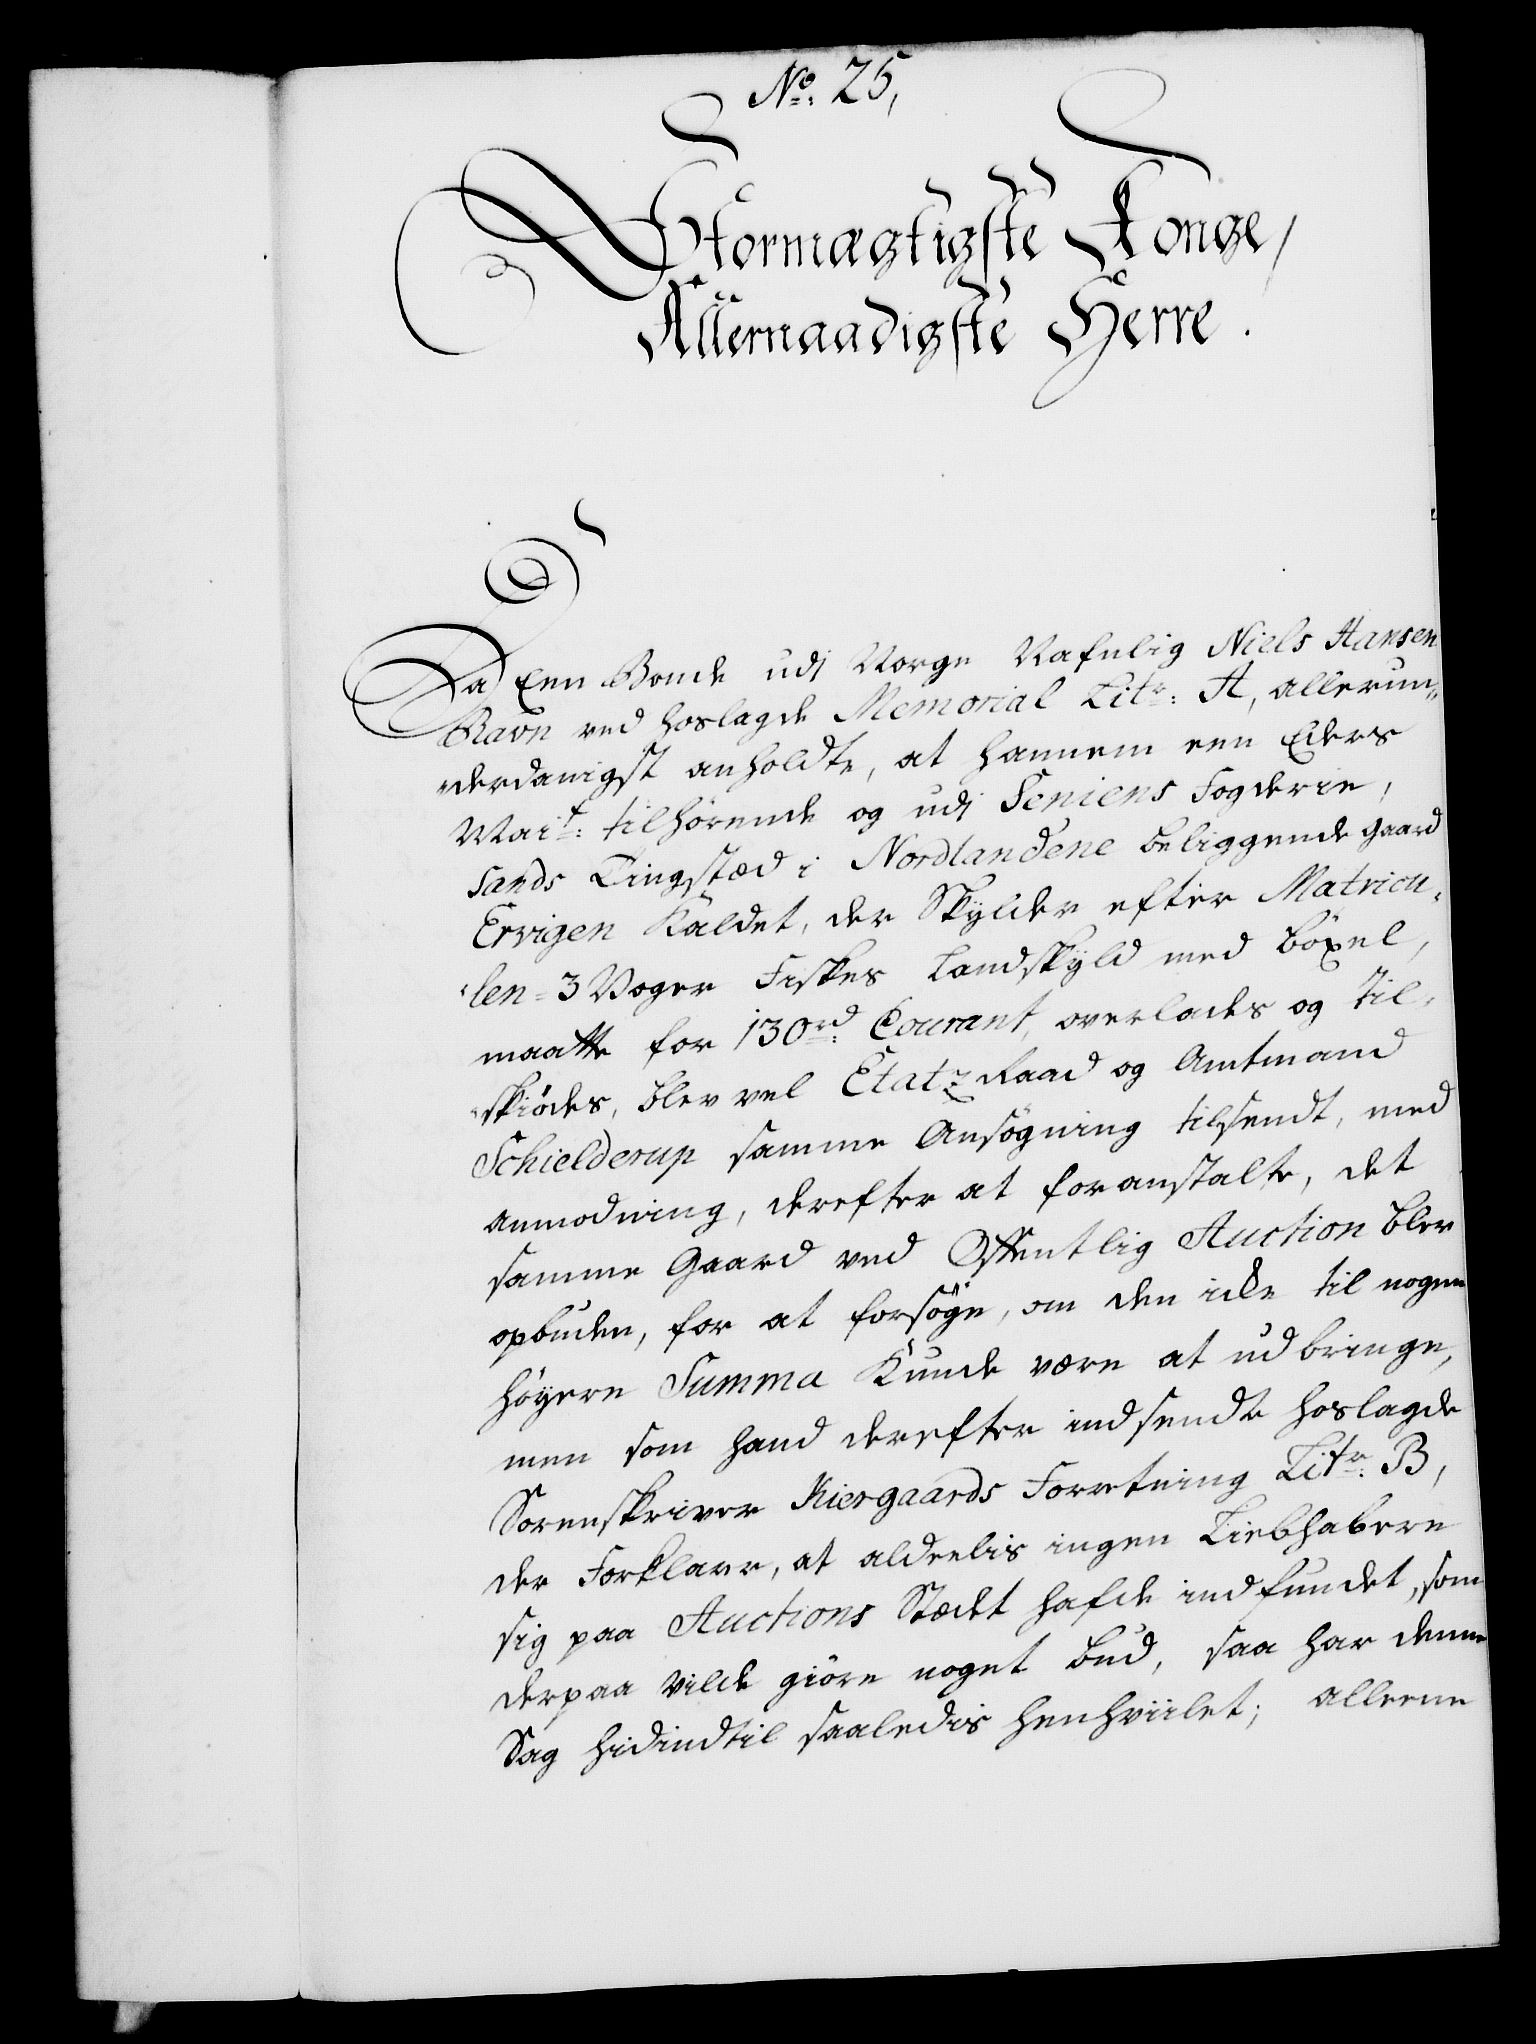 No. 25,
Stormægtigste Konge/
Allernaadigste Herre.
Da Een Bonde udj Norge Nafnlig Niels Hansen
Ravn ved hoslagde Memorial Litr: A, allerun„
„derdanigst anholdte, at hannem een Eders
Mait: tilhörende og udj Seniens Fogderie,
Sands Tingstæd i Nordlandene beliggende gaard
Ervigen kaldet, der Skylder efter Matricu„
„len = 3 Voger Fiskes Landskyld med böxel,
maatte for 130rd: Courant, overlades og til„
„skiödes, blev vel Etatz Raad og Amtmand
Schielderup samme Ansögning tilsendt, med
anmodning, derefter at foranstalte, det
samme Gaard ved Offentlig Auction blev
opbuden, for at forsöge, om den icke til nogen
höyere Summa kunde være at udbringe,
men som hand derefter indsendte hoslagde
Sorenskriver Kiergaards Forretning Litr: B,
der Forklarer, at aldeelis ingen Liebhabere
sig paa Auctions Stædet hafde indfundet, som
derpaa vilde giöre noget bud, saa har denne
Sag hidindtil saaledis henhviilet; alleene